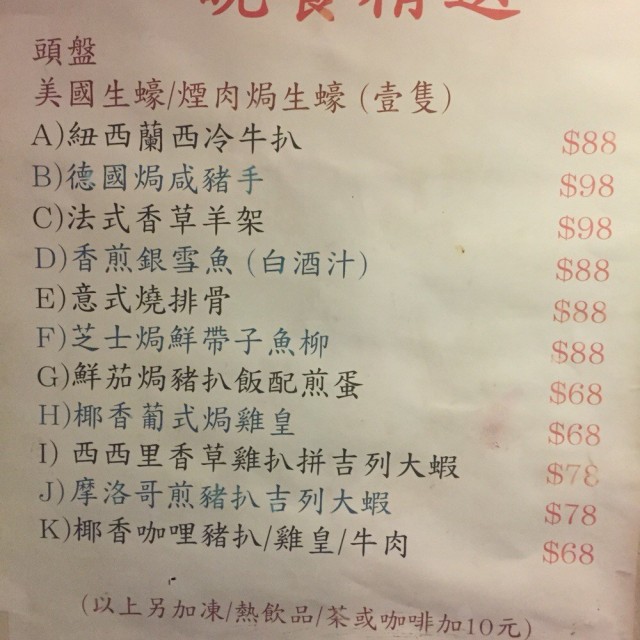 晚餐精選
頭盤
美國生蠔/煙肉焗生蠔 (壹隻)
A)紐西蘭西冷牛扒 $88
B)德國焗咸豬手 $98
C)法式香草羊架 $98
D)香煎銀雪魚 (白酒汁) $88
E)意式燒排骨 $88
F)芝士焗鮮帶子魚柳 $88
G)鮮茄焗豬扒飯配煎蛋 $68
H)椰香葡式焗雞皇 $68
I) 西西里香草雞扒拼吉列大蝦 $78
J)摩洛哥煎豬扒吉列大蝦 $78
K)椰香咖哩豬扒/雞皇/牛肉 $68
(以上另加凍/熱飲品/茶或咖啡加10元)